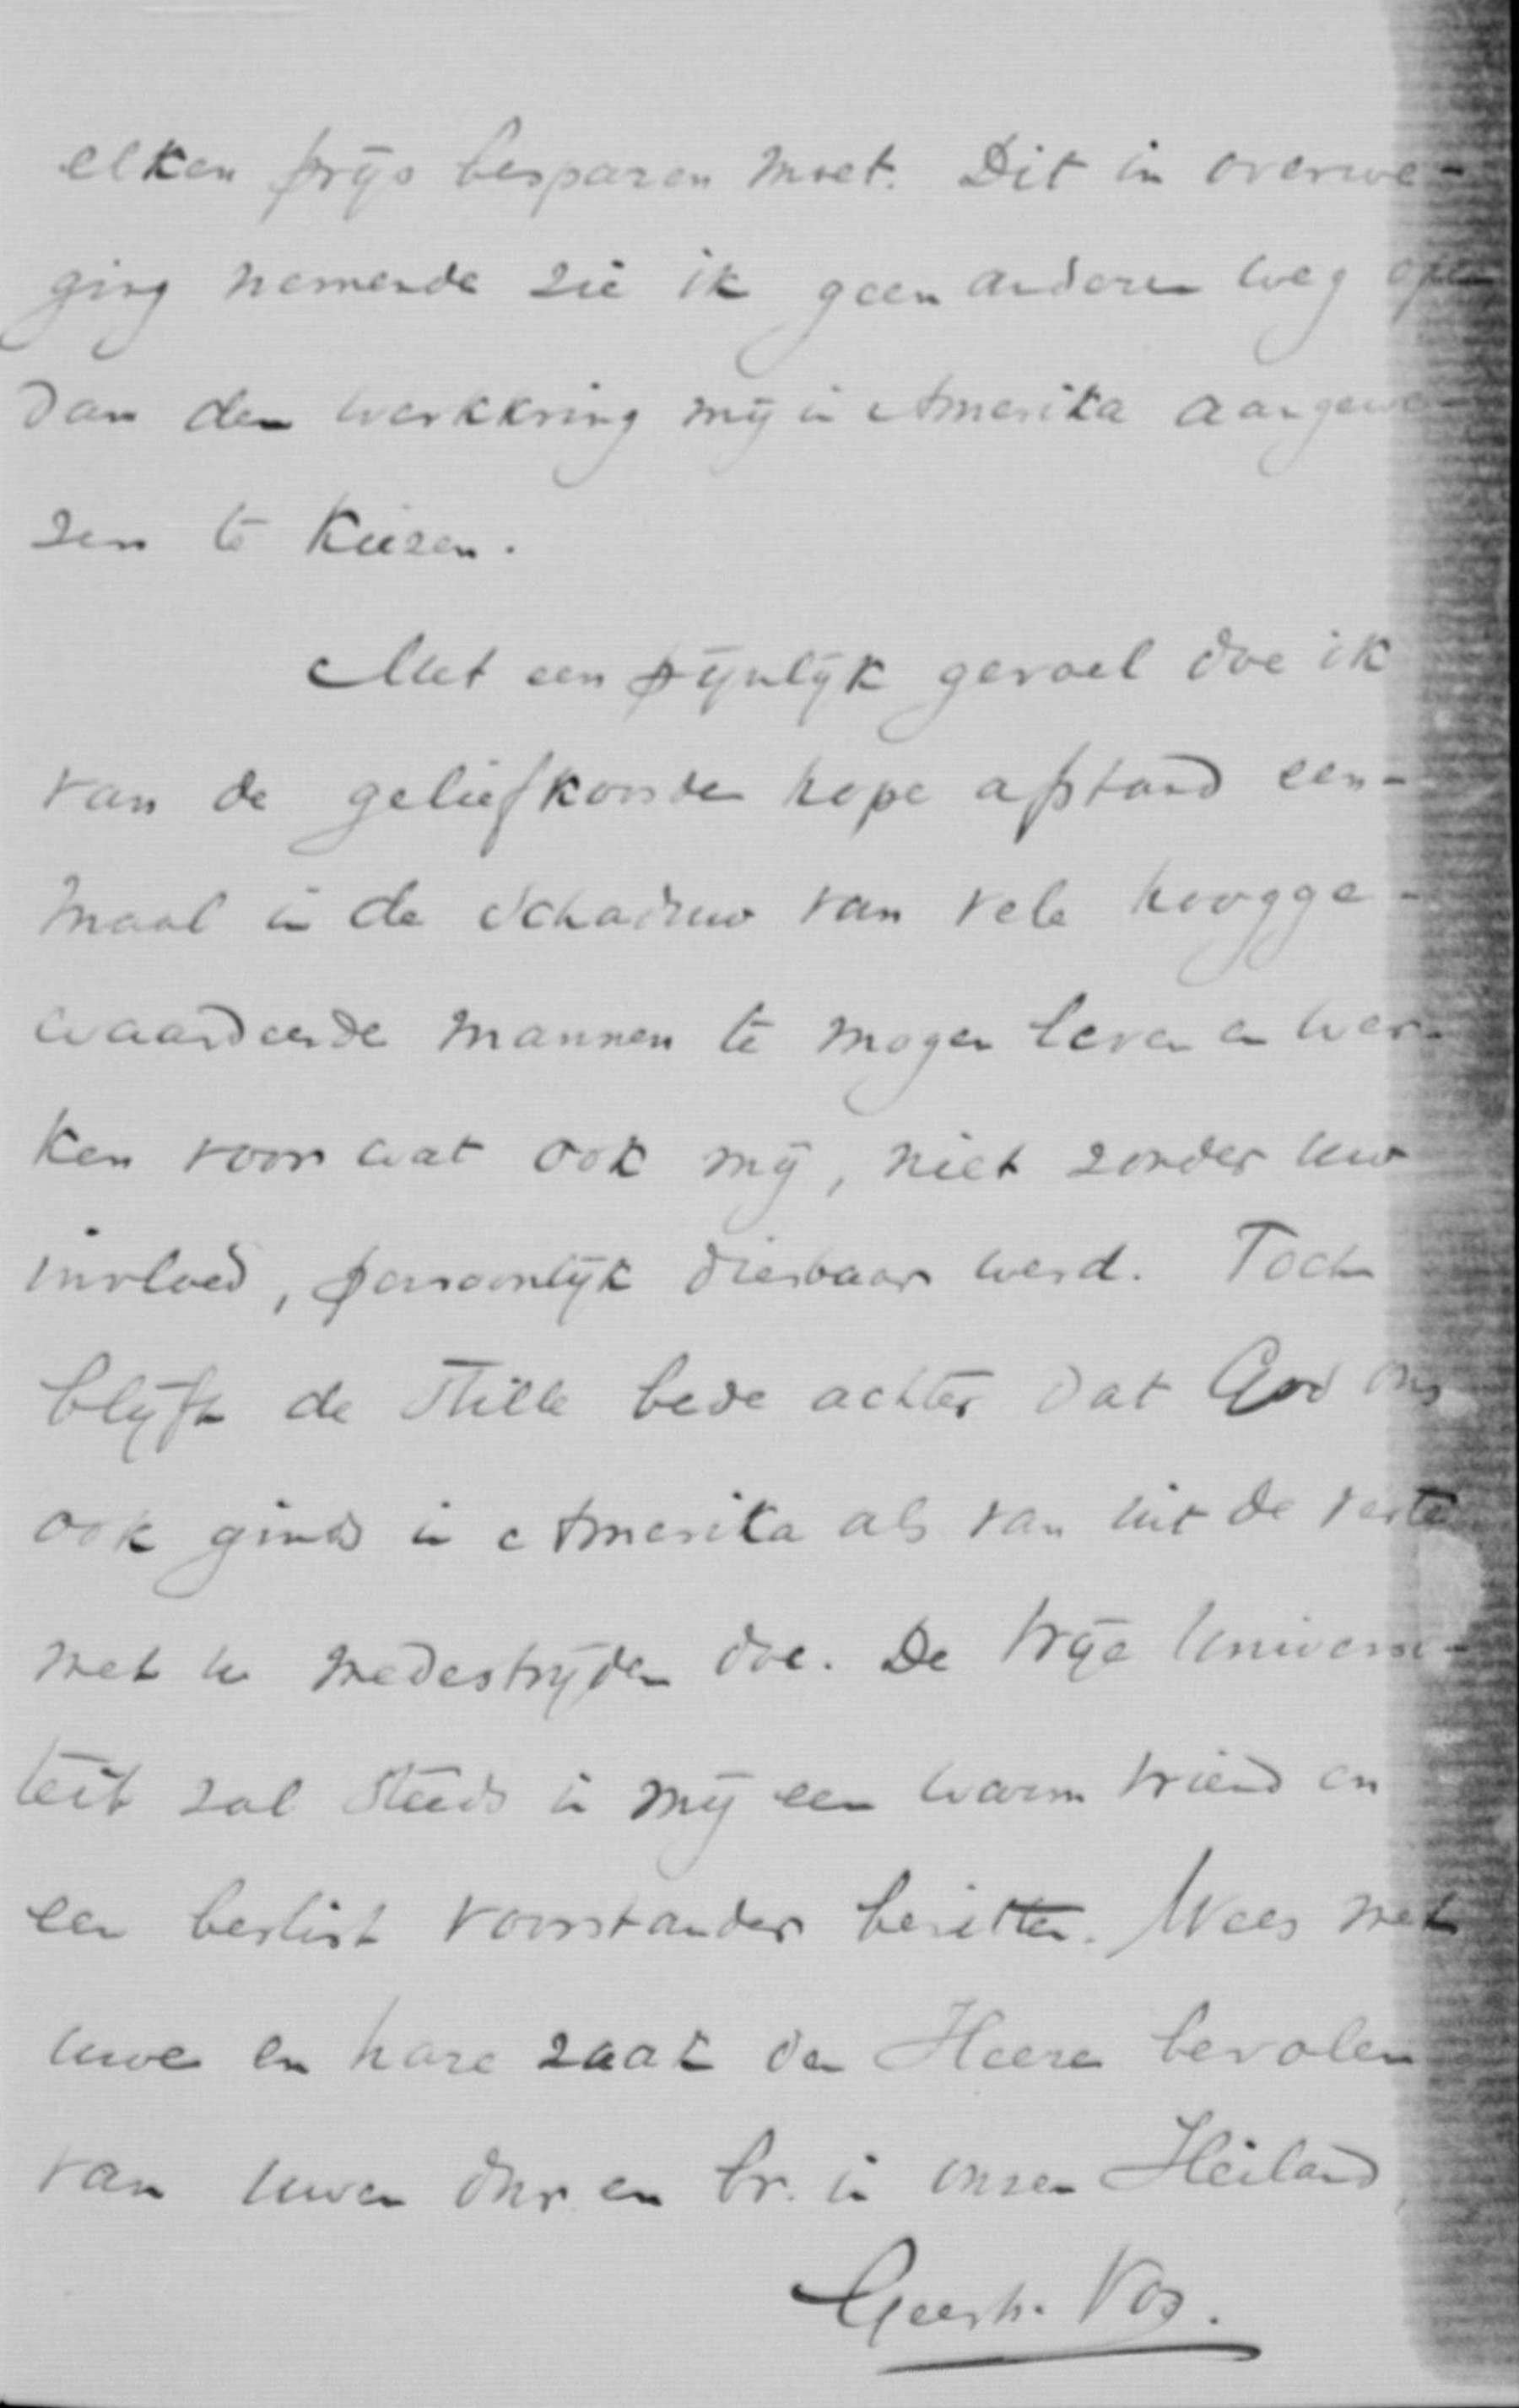 elken prijs besparen moet. Dit in overwe-
ging nemende zie ik geen anderen weg open
dan den werkkring mij in Amerika aangewe-
zen te kiezen.
Met een pijnlijk gevoel doe ik
van de geliefkoosde hope afstand een-
maal in de schaduw van vele hoogge-
waardeerde mannen te mogen leven en wer-
ken voor wat ook mij, niet zonder uw
invloed, persoonlijk dierbaar werd. Toch
blijft de stille bede achter dat God ons
ook ginds in Amerika als van uit de verte
met u medestrijden doe. De Vrije Universi-
teit zal steeds in mij een warm vriend en
een beslist voorstander bezitten. Wees met
uwe en hare zaak den Heere bevolen
van uwen dnr. en br. in onzen Heiland,
Geerh. Vos.